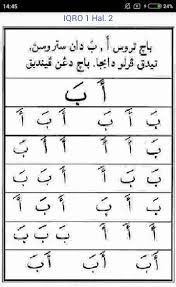 14:45 24%
IQRO 1 Hal. 2
باچ تروس أَ , بَ دان ستروسڽ،
تيدق ڤرلو دايجا. باچ دڠن ڤينديق
أَ بَ
بَ أَ بَ أَ بَ أَ
بَ أَ أَ بَ أَ أَ
أَ بَ بَ أَ بَ بَ
بَ أَ بَ أَ بَ أَ
أَ أَ أَ بَ بَ بَ
أَبَ أَبَ أَبَ